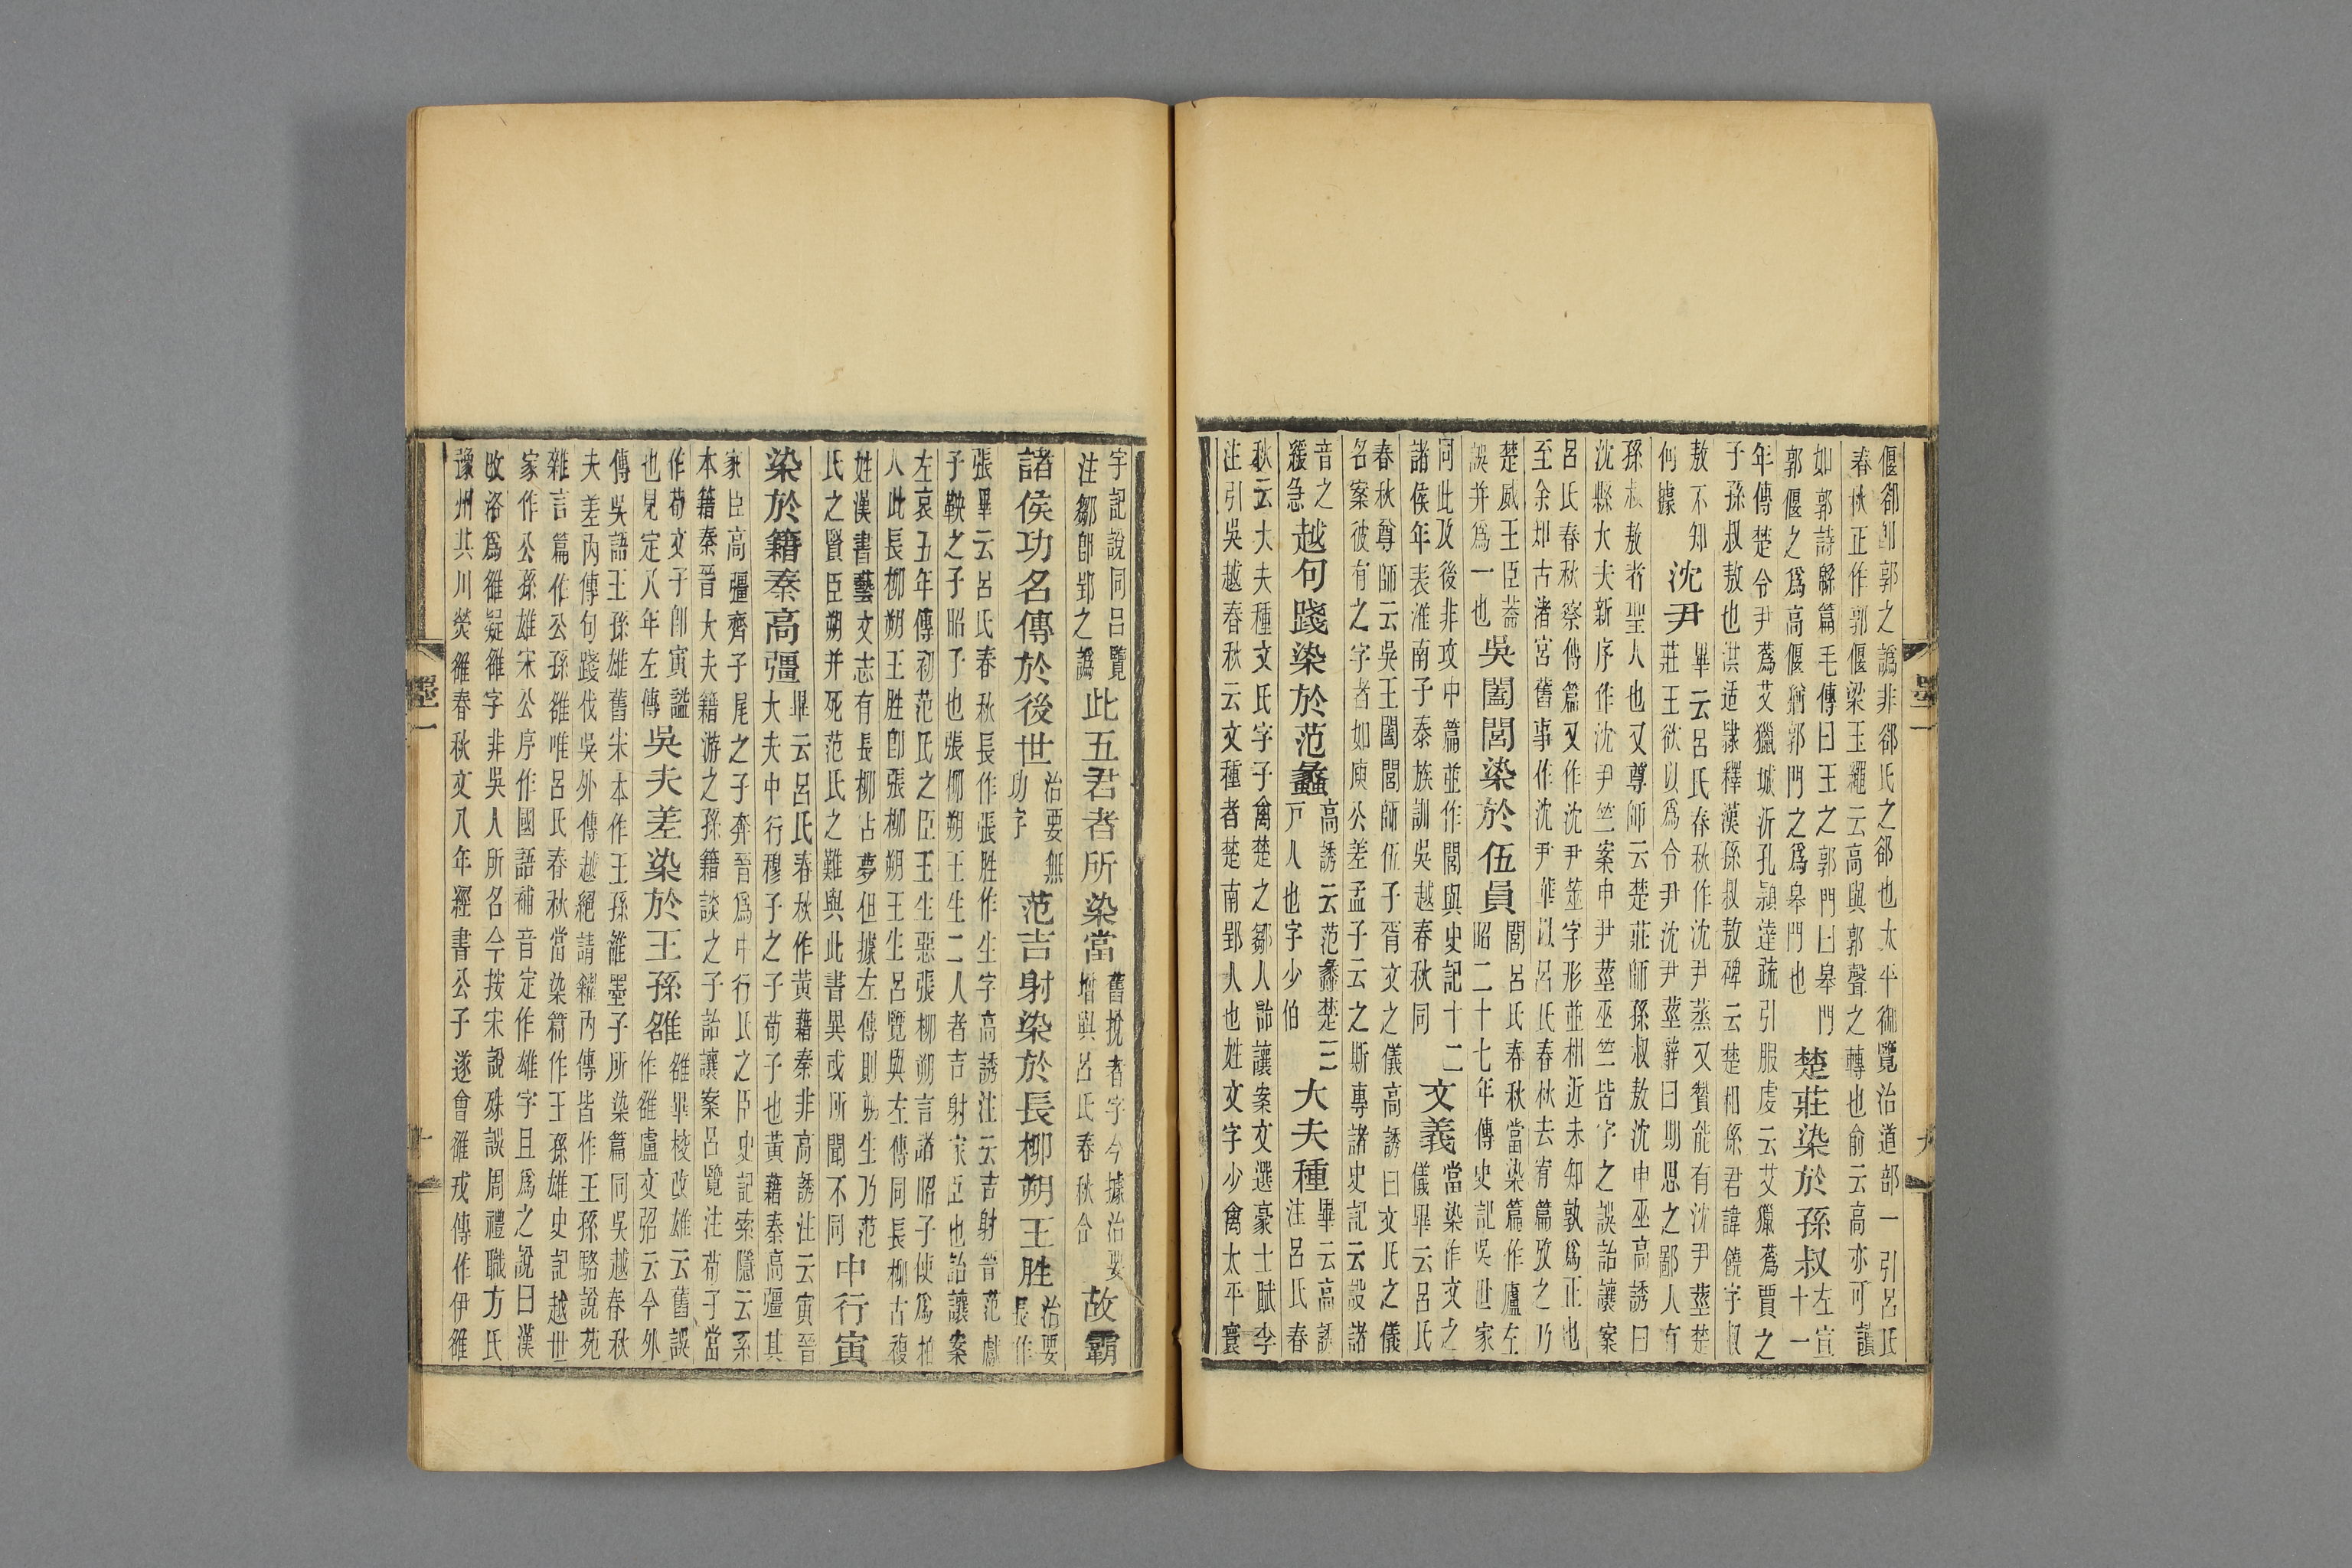 偃郤卽郭之譌非郤氏之郤也太平御覽治道部一引呂氏
春秋正作郭偃梁玉繩云高與郭聲之轉也俞云高亦可讀
如郭詩緜篇毛傳曰王之郭門曰皋門
郭偃之爲高偃猶郭門之爲皋門也
楚莊染於孫叔
左宣
十一
年傳楚令尹蒍艾獵城沂孔穎達疏引服虔云艾獵蒍賈之
子孫叔敖也洪适隸釋漢孫叔敖碑云楚相孫君諱饒字叔
敖不知
何據
沈尹
畢云呂氏春秋作沈尹蒸又贊能有沈尹莖楚
莊王欲以爲令尹沈尹莖辭曰期思之鄙人有
孫叔敖者聖人也又尊師云楚莊師孫叔敖沈申巫高誘曰
沈縣大夫新序作沈尹竺案申尹莖巫竺皆字之誤詒讓案
呂氏春秋察傳篇又作沈尹筮字形並相近未知孰爲正也
至余知古渚宮舊事作沈尹華以呂氏春秋去宥篇攷之乃
楚威王臣葢
誤并爲一也
吳闔閭染於伍員
閭呂氏春秋當染篇作廬左
昭二十七年傳史記吳世家
同此及後非攻中篇並作閭與史記十二
諸侯年表淮南子泰族訓吳越春秋同
文義
當染作文之
儀畢云呂氏
春秋尊師云吳王闔閭師伍子胥文之儀高誘曰文氏之儀
名案彼有之字者如庾公差孟子云之斯專諸史記云設諸
音之
緩急
越句踐染於范蠡
高誘云范蠡楚三
戸人也字少伯
大夫種
畢云高誘
注呂氏春
秋云大夫種文氏字子禽楚之鄒人詒讓案文選豪士賦李
注引吳越春秋云文種者楚南郢人也姓文字少禽太平寰
墨一
九
宇記說同呂覽
注鄒卽郢之譌
此五君者所染當
舊挩者字今據治要
增與呂氏春秋合
故霸
諸侯功名傳於後世
治要無
功字
范吉射染於長柳朔王胜
治要
長作
張畢云呂氏春秋長作張胜作生字高誘注云吉射晉范獻
子鞅之子昭子也張柳朔王生二人者吉射家臣也詒讓案
左哀五年傳初范氏之臣王生惡張柳朔言諸昭子使爲柏
人此長柳朔王胜卽張柳朔王生呂覽與左傳同長柳古複
姓漢書藝文志有長柳占夢但據左傳則朔生乃范
氏之賢臣朔并死范氏之難與此書異或所聞不同
中行寅
染於籍秦高彊
畢云呂氏春秋作黃藉秦非高誘注云寅晉
大夫中行穆子之子荀子也黃藉秦高彊其
家臣高彊齊子尾之子奔晉爲中行氏之臣史記索隱云系
本籍秦晉大夫籍游之孫籍談之子詒讓案呂覽注荀子當
作荀文子卽寅謚
也見定八年左傳
吳夫差染於王孫雒
雒畢校改雄云舊誤
作雒盧文弨云今外
傳吳語王孫雄舊宋本作王孫雒墨子所染篇同吳越春秋
夫差內傳句踐伐吳外傳越絕請糴內傳皆作王孫駱說苑
雜言篇作公孫雒唯呂氏春秋當染篇作王孫雄史記越世
家作公孫雄宋公序作國語補音定作雄字且爲之說曰漢
改洛爲雒疑雒字非吳人所名今按宋說殊誤周禮職方氏
豫州其川熒雒春秋文八年經書公子遂會雒戎傳作伊雒
墨一
十